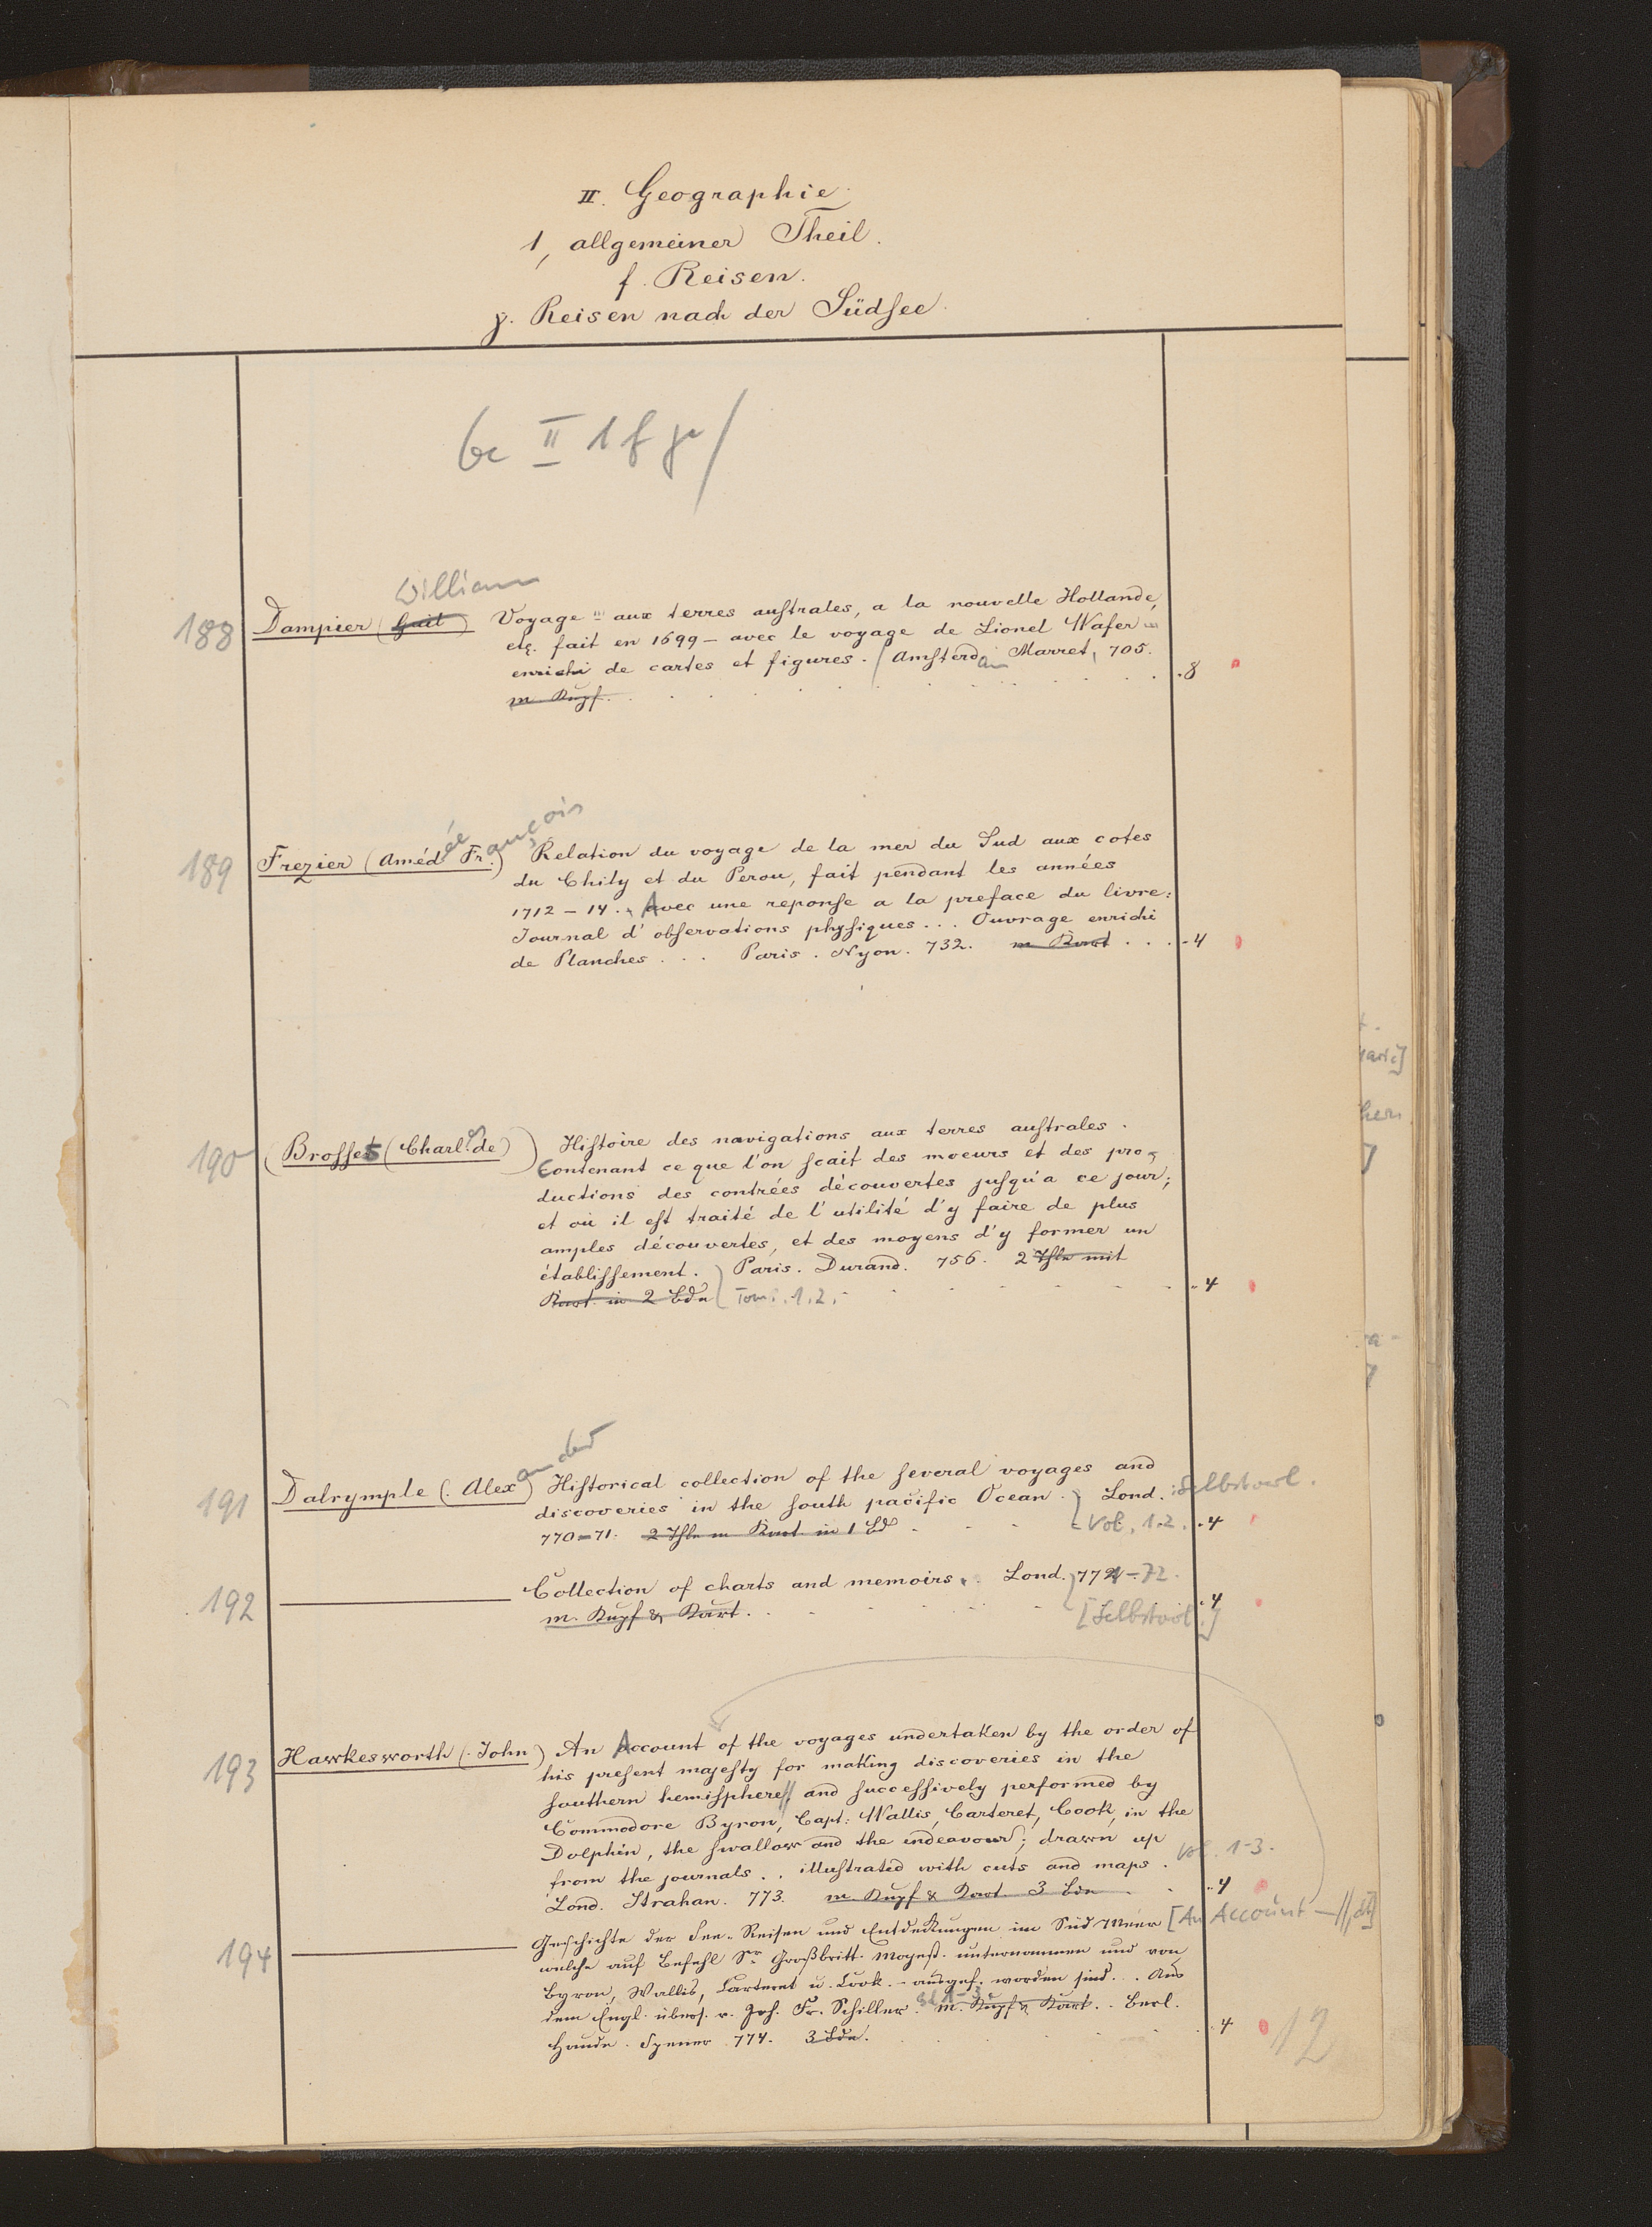 II. Geographie.
1, allgemeiner Theil.
f. Reisen.
γ. Reisen nach der Südsee.
6c II 1 f γ /
William
188 Dampier (Guil) Voyage aux terres australes, a la nouvelle Hollande,
etc. fait en 1699 – avec le voyage de Lionel Wafer
enrichi de cartes et figures. / Amsterdam Marret, 705.
m Kupf. . . . 8
189 Frezier (Amédée François) Relation du voyage de la mer du Sud aux cotes
du Chily et du Perou, fait pendant les années
1712 – 14. Avec une reponse a la preface du livre:
Journal d'observations physiques ... Ouvrage enrichi
de Planches ... Paris. Nyon. 732. m Kart . . . 4
190 (Brosses (Charles de)) Histoire des navigations aux terres australes.
Contenant ce que l'on scait des moeurs et des pro-
ductions des contrées découvertes jusqu'a ce jour;
et où il est traité de l'utilité d'y faire de plus
amples découvertes, et des moyens d'y former un
établissement. Paris. Durand. 756. 2 Thle mit
Kart. in 2 Bdn [Tom. 1.2. - . . 4
191 Dalrymple (Alexander) Historical collection of the several voyages and
discoveries in the south pacific Ocean. Lond. : Selbstverl.
770-71. 2 Thle m Kart. in 1 Bd - Vol. 1.2. . 4
192 ——— Collection of charts and memoirs. Lond. 771-72.
m. Kupf & Kart. . . [Selbstverl.] 4
193 Hawkesworth (John) An Account of the voyages undertaken by the order of
his present majesty for making discoveries in the
southern hemisphere // and successively performed by
Commodore Byron, Capt: Wallis, Carteret, Cook, in the
Dolphin, the swallow and the indeavour; drawn up
from the journals .. illustrated with cuts and maps. Vol. 1-3.
Lond. Strahan. 773. m. Kupf & Kart. 3 Bde . . 4
194 ——— Geschichte der See-Reisen und Entdeckungen im Süd Meer [An Account —//, dt]
welche auf Befehl Sr Großbritt. Majest. unternommen und von
Byron, Wallis, Carteret u. Cook. – ausgef. worden sind. .. Aus
dem Engl. übers. v. Joh. Fr. Schiller. Bd 1-3. m. Kupf & Kart. .. Berl.
Haude. Spener 774. 3 Bde. . . 4
12